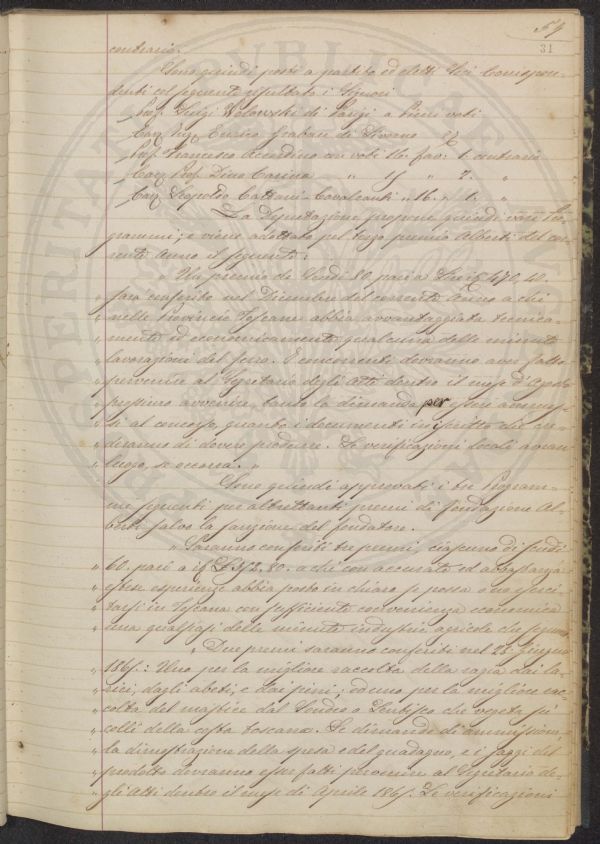 59
31
contrario.
Sono quindi posti a partito ed eletti Soci Corrispon-
denti col seguente resultato i Signori
Prof. Luigi Wolowski di Parigi a pieni voti
Cav. Ing. Enrico Grabau di Livorno
Prof. Francesco Accardino con voti 16. fav: 1. contrario
Cav. Prof. Dino Carina " 15 " 2. "
Cav. Leopoldo Cattani-Cavalcanti " 16. " 1. "
La Deputazione propone quindi varj Pro-
grammi; e viene adottato pel terzo premio Alberti del cor-
rente Anno il seguente:
" Un premio di Scudi 80. pari a Lire it. 470,40.
" sarà conferito nel Dicembre del corrente Anno a chi
" nelle Provincie Toscane abbia avvantaggiata tecnica-
" mente ed economicamente qualcuna delle minute
" lavorazioni del ferro. I concorrenti dovranno aver fatto
" pervenire al Segretario degli Atti dentro il mese d'Agosto
" prossimo avvenire, tanto la domanda per essere ammes-
" si al concorso, quanto i documenti in iscritto che cre-
" deranno di dovere produrre. Le verificazioni locali avran
" luogo, se occorra. "
Sono quindi approvati i tre Program-
mi seguenti per altrettanti premi di fondazione Al-
berti salvo la sanzione del fondatore.
" Saranno conferiti tre premi, ciascuno di Scudi
" 60. pari a 352,80. a chi con accurate ed abbastanza
" estese esperienze abbia posto in chiaro se possa o no eserci-
" tarsi in Toscana con sufficiente convenienza economica
" una qualsiasi delle minute industrie agricole che seguono
" Due premi saranno conferiti nel 28. Giugno
" 1865.: Uno per la migliore raccolta della ragia dai la-
" rici, dagli abeti, e dai pini; ed uno per la migliore rac-
" colta del mastice dal Sondro o Lentisco che vegeta su'
" colli della costa toscana. Le dimande di ammissione,
" la dimostrazione della spesa e del guadagno, e i saggi del
" prodotto dovranno esser fatti pervenire al Segretario de-
" gli Atti dentro il mese di Aprile 1865. Le verificazioni